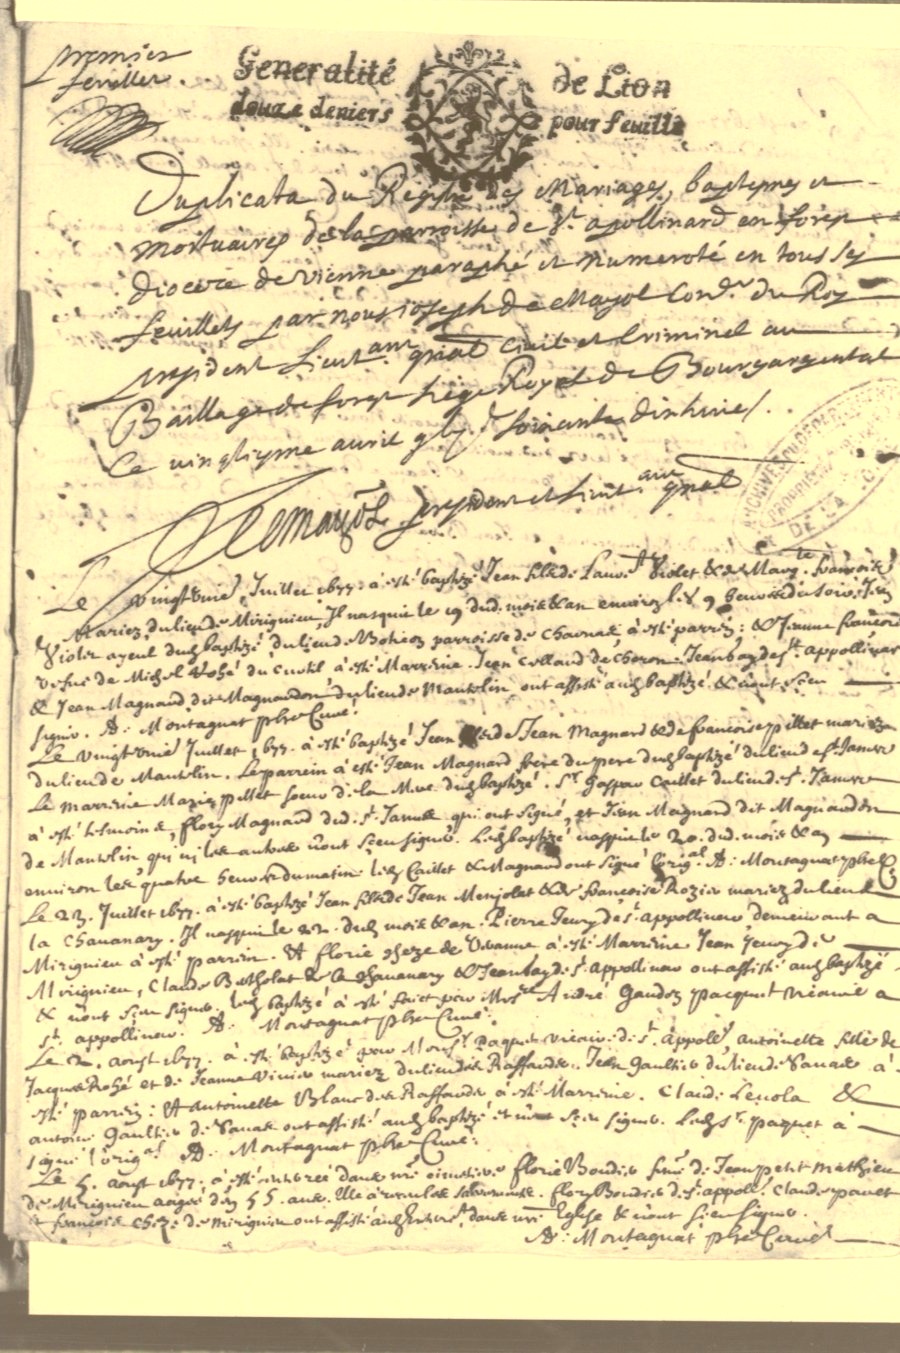 premier
feuillet.
Generalité de Lion
douze deniers pour feuille
Duplicata du Registre des Mariages, baptemes et
mortuaires de la parroisse de St. apollinard en forez
diocese de vienne paraphé et numeroté en tous ses
feuillets par nous ioseph de Mayol Cons.er du Roy
president Lieut.ant gnal Civil et Criminel au
Bailliage de forez siege Royal de Bourgargental
Ce vingtiesme avril soixante dixhuict.
Demayol president et Lieut.ant gnal
Le Juillet 1677. à esté baptizé Jean fils de Laur.t Violet & de Marg.te francoise
Mariez du lieu de Mirignieu, Il nasquit le 19 dud. mois & an environ les 9 heures du soir. Jean
Violet ayeul dud. baptizé du lieu de parroisse de à esté parrein: & Jeanne
vesve de Michel du à esté Marreine. Jean Collaud de Jean bay de St. appollinar
& Jean Magnand dit Magnandon du lieu de Mantelin ont assisté aud. baptizé & n'ont sceu
signer. A: Montagnat pbre Curé.
Le Juillet 1677. à esté baptizé Jean fils de Jean Magnard & de francoise pillet mariez
du lieu de Mantelin. Le parrein à esté Jean Magnard frere du pere dud. baptizé du lieu de St. Jamure
La marreine Marie pillet soeur de la Mere dud. baptizé. Sr. Gaspar Caillet du lieu de St. Jamure
à esté tesmoin &, flory Magnand dud. St. Jamure qui ont signé, et Jean Magnand dit Magnandon
de Mantelin qui ni les autres n'ont sceu signer. Led. baptizé nasquit le 20. dud. mois & an
environ les quatre heures du matin. led. Caillet & Magnand ont signé l'orig.al A: Montagnat pbre C.
Le 23. Juillet 1677. à esté baptizé Jean fils de Jean Menjolat & de francoise Rozier mariez du lieu de
la Chavanary. Il nasquit le 22. dud. mois & an. Pierre de St. appollinar demeurant à
Mirignieu à esté parrein. & florie cheze de à esté Marreine. Jean de
Mirignieu, Claude Bertholat de la Chavanary & Jean bay de St. appollinar ont assisté aud. baptizé
& n'ont sceu signer, led. baptizé à esté faict par Mre André Gaudoz pacquet vicaire a
St. appollinar. A: Montagnat pbre Curé.
Le 2. aoust 1677. à esté baptizée par Mons.r paquet vicaire de St. Appoll.r antoinette fille de
Jacques et de Jeanne Vinier mariez du lieu de Raffaude. Jean Gaultier du lieu de Vanas à
esté parrein: & Antoinette Blanc de Raffaude à esté Marreine. Claude Lenola &
antoine Gaultier de Vanas ont assisté aud. baptizé et n'ont sceu signer. Led. Sr. paquet à
signé l'orig.al A: Montagnat pbre Curé.
Le 5. aoust 1677. à esté enterrée dans nre cimetiere florie Boudier femme de Jean petit mathieu
de Mirignieu aagée de 55 ans. Elle à receu les sacremens. flory Boudier de St. appoll.r Claude panet
& francois Cheze de Mirignieu ont assisté aud. Enterr.t dans nre Eglise & n'ont sceu signer.
A: Montagnat pbre Curé